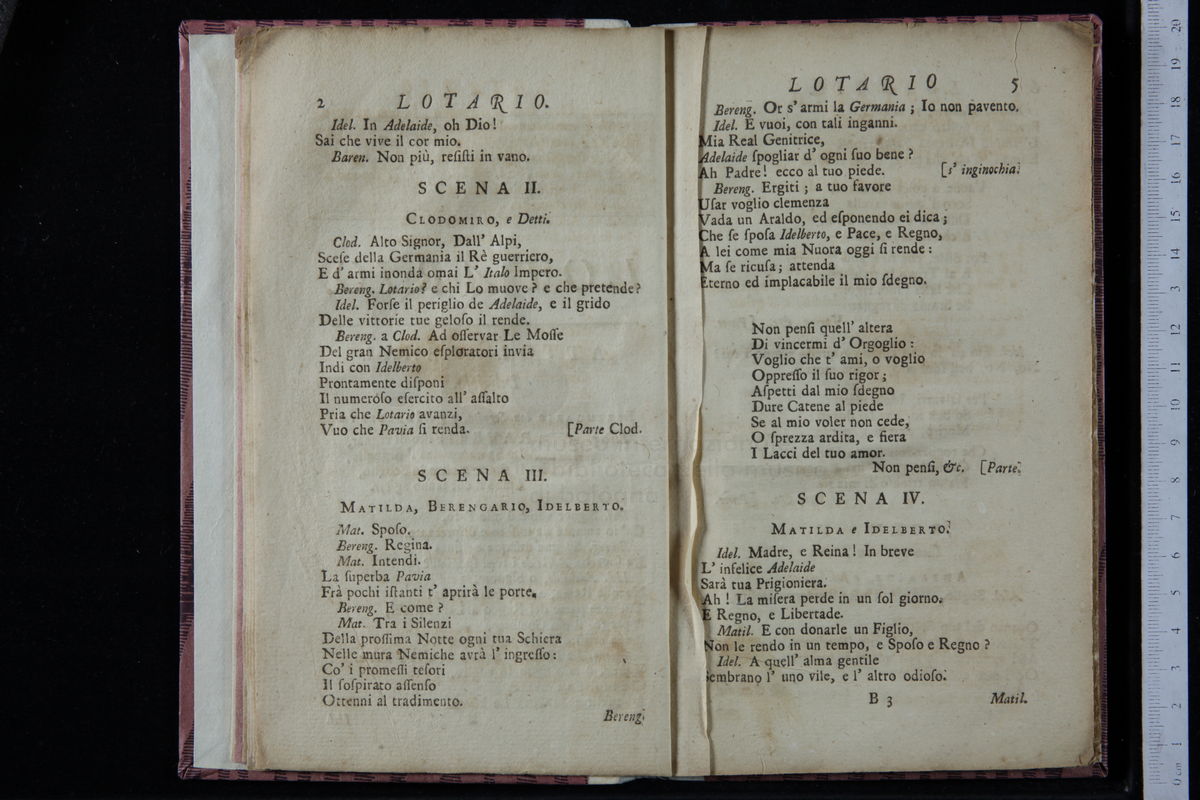 2 LOTARIO.
Idel. In Adelaide, oh Dio!
Sai che vive il cor mio.
Baren. Non più, reſiſti in vano.
SCENA II.
CLODOMIRO, e Detti.
Clod. Alto Signor, Dall' Alpi,
Sceſe della Germania il Rè guerriero,
E d' armi inonda omai L' Italo Impero.
Bereng. Lotario? e chi Lo muove? e che pretende?
Idel. Forſe il periglio de Adelaide, e il grido
Delle vittorie tue geloſo il rende.
Bereng. a Clod. Ad oſſervar Le Moſſe
Del gran Nemico eſploratori invia
Indi con Idelberto
Prontamente diſponi
Il numeroſo eſercito all' aſſalto
Pria che Lotario avanzi,
Vuo che Pavia ſi renda. [Parte Clod.
SCENA III.
MATILDA, BERENGARIO, IDELBERTO.
Mat. Spoſo.
Bereng. Regina.
Mat. Intendi.
La ſuperba Pavia
Frà pochi iſtanti t' aprirà le porte.
Bereng. E come?
Mat. Tra i Silenzi
Della proſſima Notte ogni tua Schiera
Nelle mura Nemiche avrà l' ingreſſo:
Co' i promeſſi teſori
Il ſoſpirato aſſenſo
Ottenni al tradimento.
Bereng.
LOTARIO 5
Bereng. Or s' armi la Germania; Io non pavento.
Idel. E vuoi, con tali inganni.
Mia Real Genitrice,
Adelaide ſpogliar d' ogni ſuo bene?
Ah Padre! ecco al tuo piede. [s' inginochia.
Bereng. Ergiti; a tuo favore
Uſar voglio clemenza
Vada un Araldo, ed eſponendo ei dica;
Che ſe ſpoſa Idelberto, e Pace, e Regno,
A lei come mia Nuora oggi ſi rende:
Ma ſe ricuſa; attenda
Eterno ed implacabile il mio ſdegno.
Non penſi quell' altera
Di vincermi d' Orgoglio:
Voglio che t' ami, o voglio
Oppreſſo il ſuo rigor;
Aſpetti dal mio ſdegno
Dure Catene al piede
Se al mio voler non cede,
O ſprezza ardita, e fiera
I Lacci del tuo amor.
Non penſi, &c. [Parte.
SCENA IV.
MATILDA e IDELBERTO.
Idel. Madre, e Reina! In breve
L' infelice Adelaide
Sarà tua Prigioniera.
Ah! La miſera perde in un ſol giorno.
E Regno, e Libertade.
Matil. E con donarle un Figlio,
Non le rendo in un tempo, e Spoſo e Regno?
Idel. A quell' alma gentile
Sembrano l' uno vile, e l' altro odioſo.
B 3 Matil.
20 19 18 17 16 15 14 13 12 11 10 9 8 7 6 5 4 3 2 1 0 cm